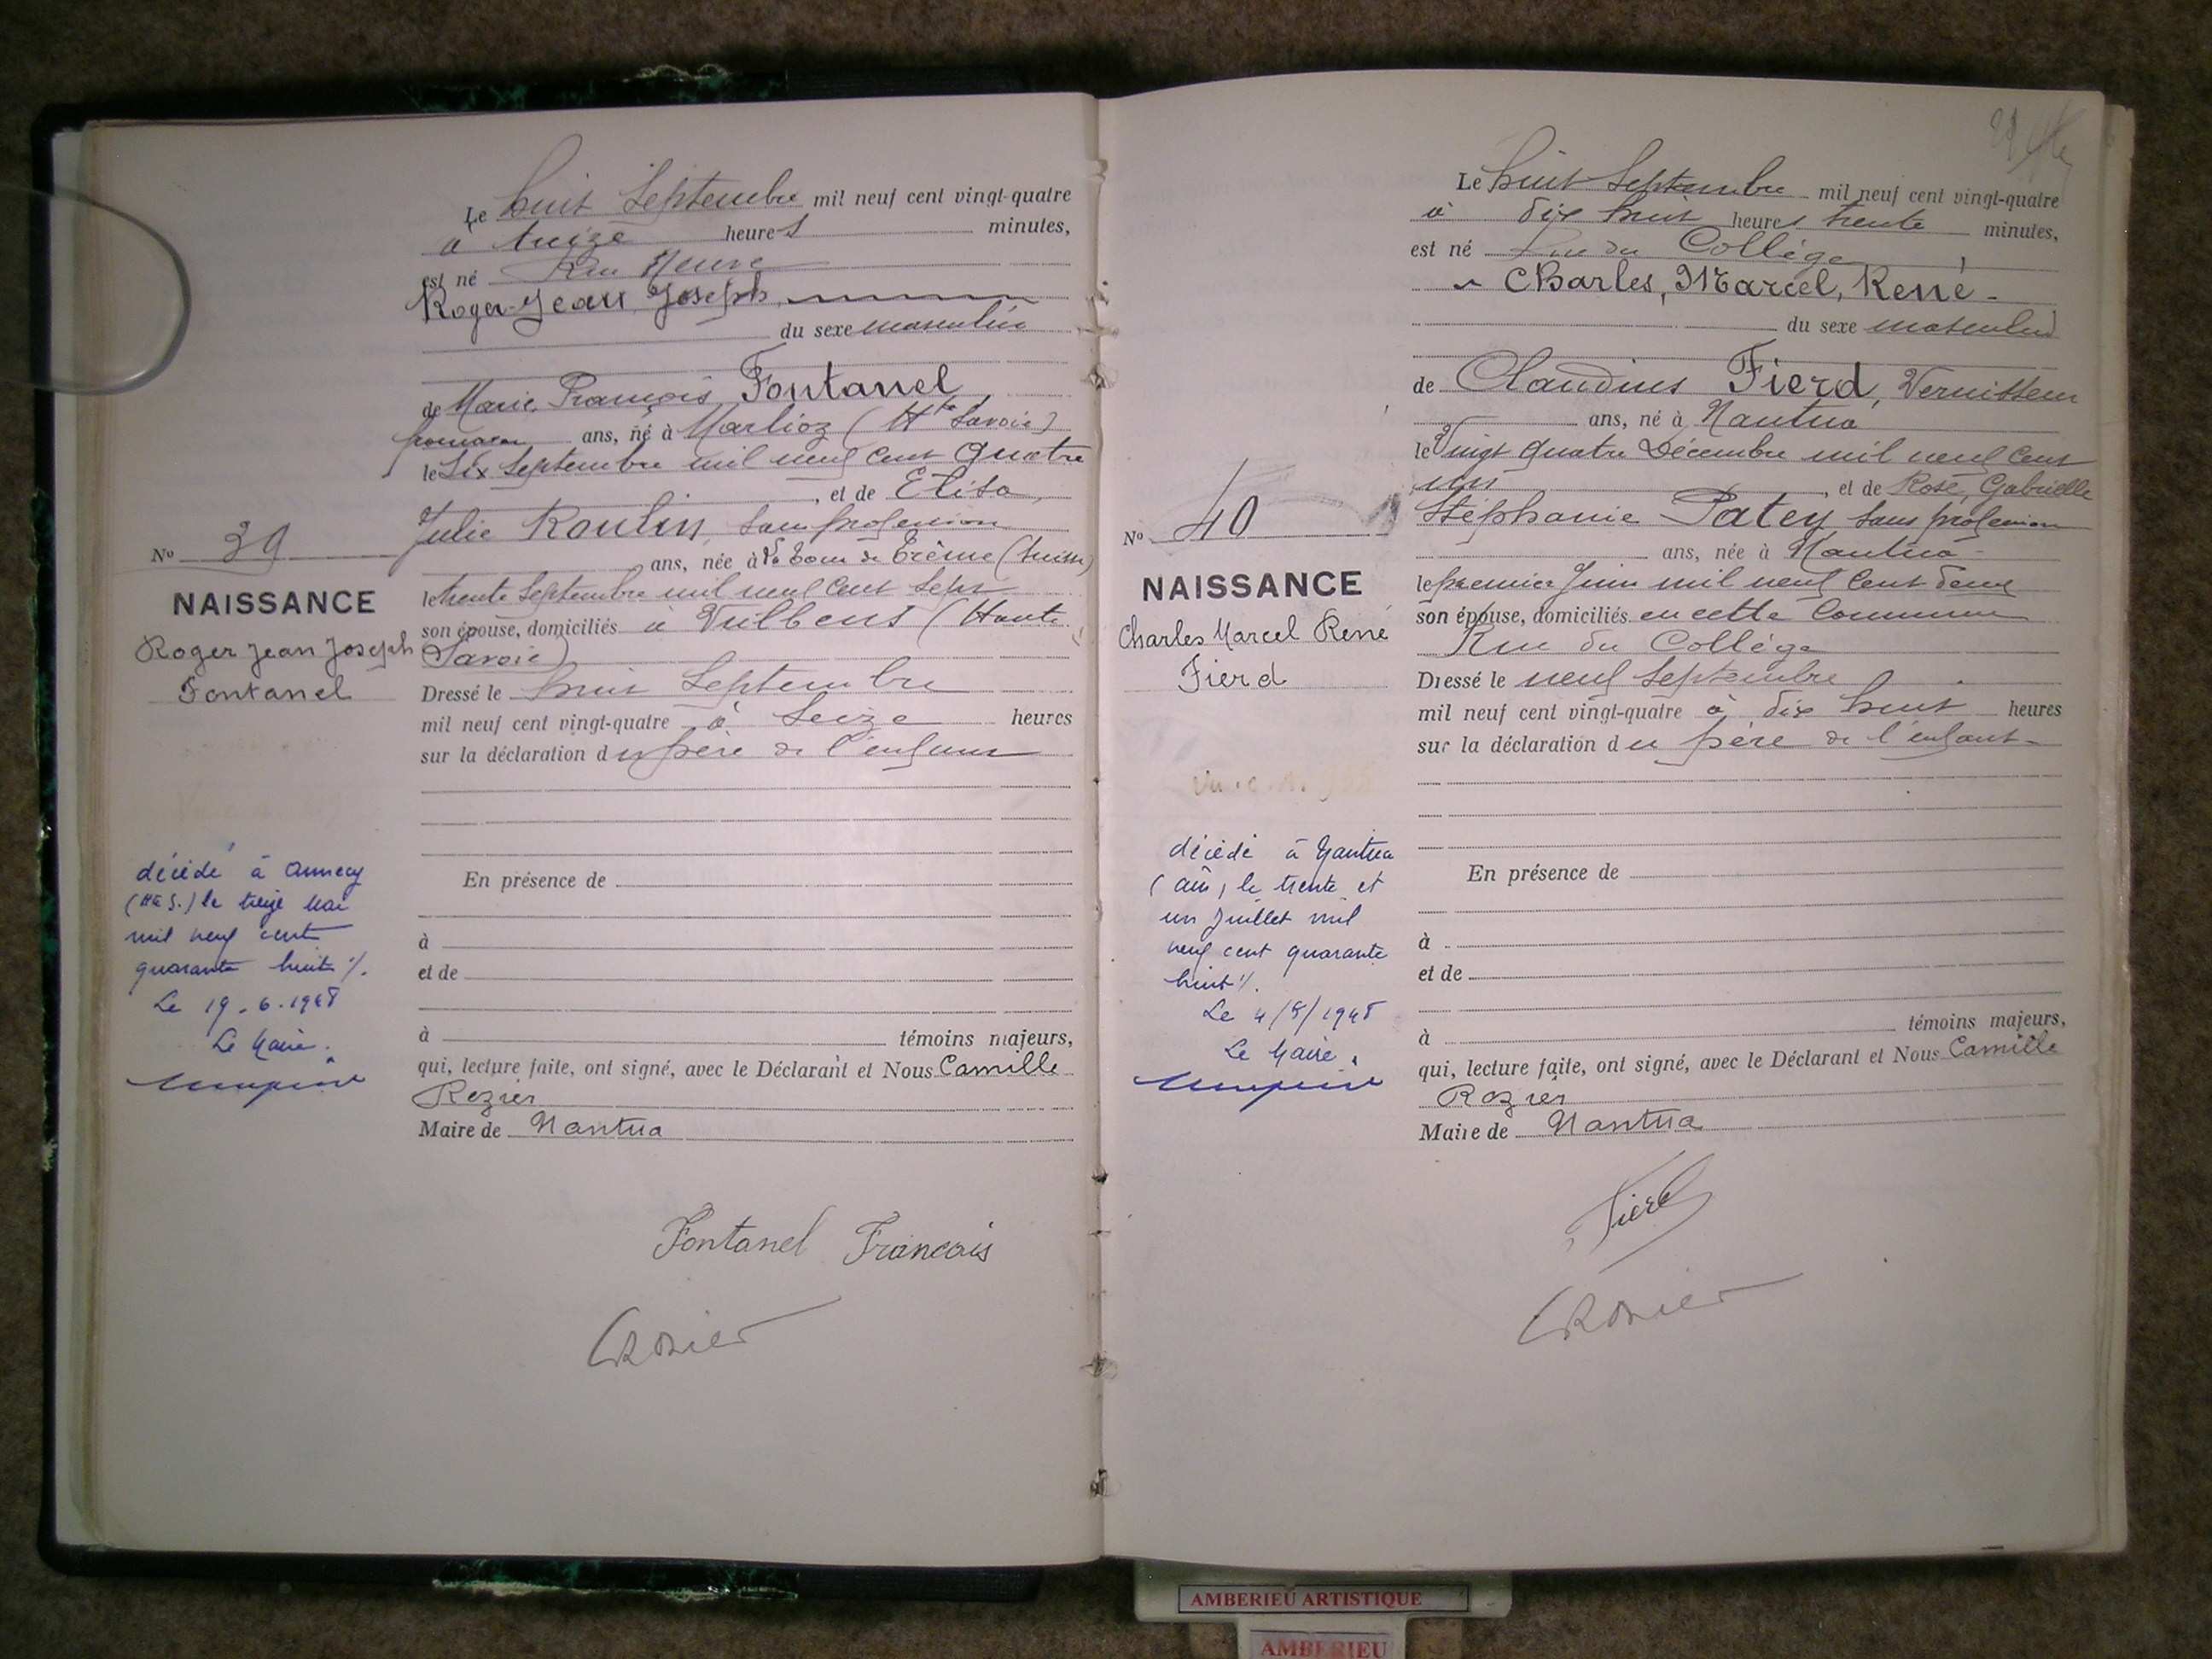 Le huit Septembre mil neuf cent vingt-quatre
à treize heures minutes,
est né Rue Neuve
Roger-Jean, Joseph,
du sexe masculin
de Marie, François, Fontanel,
ans, né à Marlioz (Hte Savoie)
le Six Septembre mil neuf cent quatre
, et de Elisa,
Julie Roulin, sans profession
ans, née à la Tour de Trême (Suisse)
le trente Septembre mil neuf cent sept
son épouse, domiciliés à Vulbens (Haute
Savoie)
Dressé le huit Septembre
mil neuf cent vingt-quatre à seize heures
sur la déclaration du père de l'enfant
En présence de
à
et de
à témoins majeurs,
qui, lecture faite, ont signé, avec le Déclarant et Nous Camille
Rozier
Maire de Nantua
Fontanel Francais
CRozier
No 39
NAISSANCE
Roger Jean Joseph
Fontanel
décédé à Annecy
(Hte S.) le treize Mai
mil neuf cent
quarante huit %.
Le 19.6.1948
Le Maire.
Le huit Septembre mil neuf cent vingt-quatre
à dix huit heures trente minutes,
est né Rue du Collège,
Charles, Marcel, René -
du sexe masculin
de Claudius Fierd, Vernisseur
ans, né à Nantua
le Vingt quatre Décembre mil neuf cent
un , et de Rose, Gabrielle
Stéphanie Patey sans profession
ans, née à Nantua
le premier Juin mil neuf cent deux
son épouse, domiciliés en cette Commune
Rue du Collège
Dressé le neuf Septembre
mil neuf cent vingt-quatre à dix huit heures
sur la déclaration du père de l'enfant -
En présence de
à
et de
à témoins majeurs,
qui, lecture faite, ont signé, avec le Déclarant et Nous Camille
Rozier
Maire de Nantua
Fierd
CRozier
No 40
NAISSANCE
Charles Marcel René
Fierd
décédé à Nantua
(Ain) le trente et
un Juillet mil
neuf cent quarante
huit %.
Le 4/8/1948
Le Maire.
AMBERIEU ARTISTIQUE
AMBERIEU